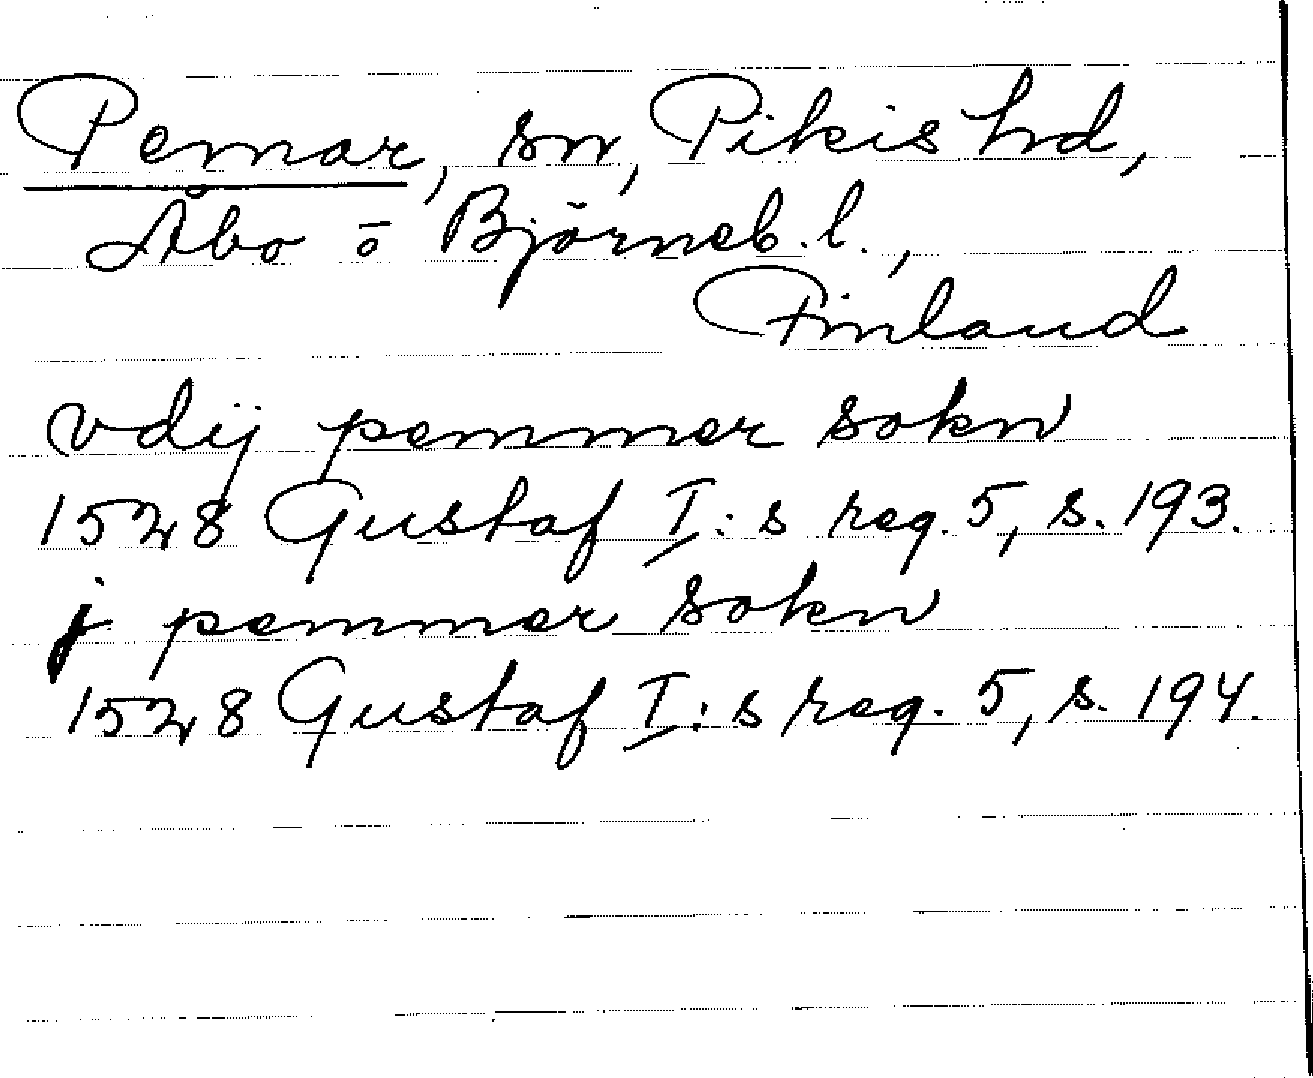 Pemar, sn, Pikis hd,
Åbo o Björneb. l.,
Finland
vdij pemmer sokn
1528 Gustaf I:s reg. 5, s. 193.
j pemmer sokn
1528 Gustaf I:s reg. 5, s. 194.